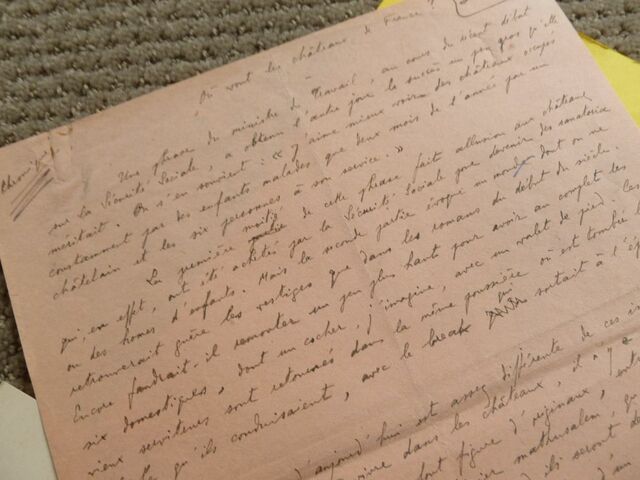 Où vont les châteaux de France ?
Chron
Une phrase du ministre du Travail, au cours du récent débat
sur la Sécurité Sociale, a obtenu l'autre jour le succès un peu gros qu'elle
méritait. On s'en souvient : « J'aime mieux voir des châteaux occupés
constamment par des enfants malades que deux mois de l'année par un
châtelain et les six personnes à son service. »
La première moitié de cette phrase fait allusion aux châteaux
qui, en effet, ont été achetés par la Sécurité Sociale pour devenir des sanatoria
ou des homes d'enfants. Mais la seconde partie évoque un monde dont on ne
retrouverait guère les vestiges que dans les romans du début du siècle.
Encore faudrait-il remonter un peu plus haut pour avoir au complet les
six domestiques, dont un cocher, j'imagine, avec un valet de pied. Ces
vieux serviteurs sont retournés dans la même poussière où est tombée la
qu'ils conduisaient, avec le break qui sortait à l'
d'aujourd'hui est assez différente de ces
vivre dans les châteaux, il y a
font figure d'originaux,
mathusalem,
ils seront